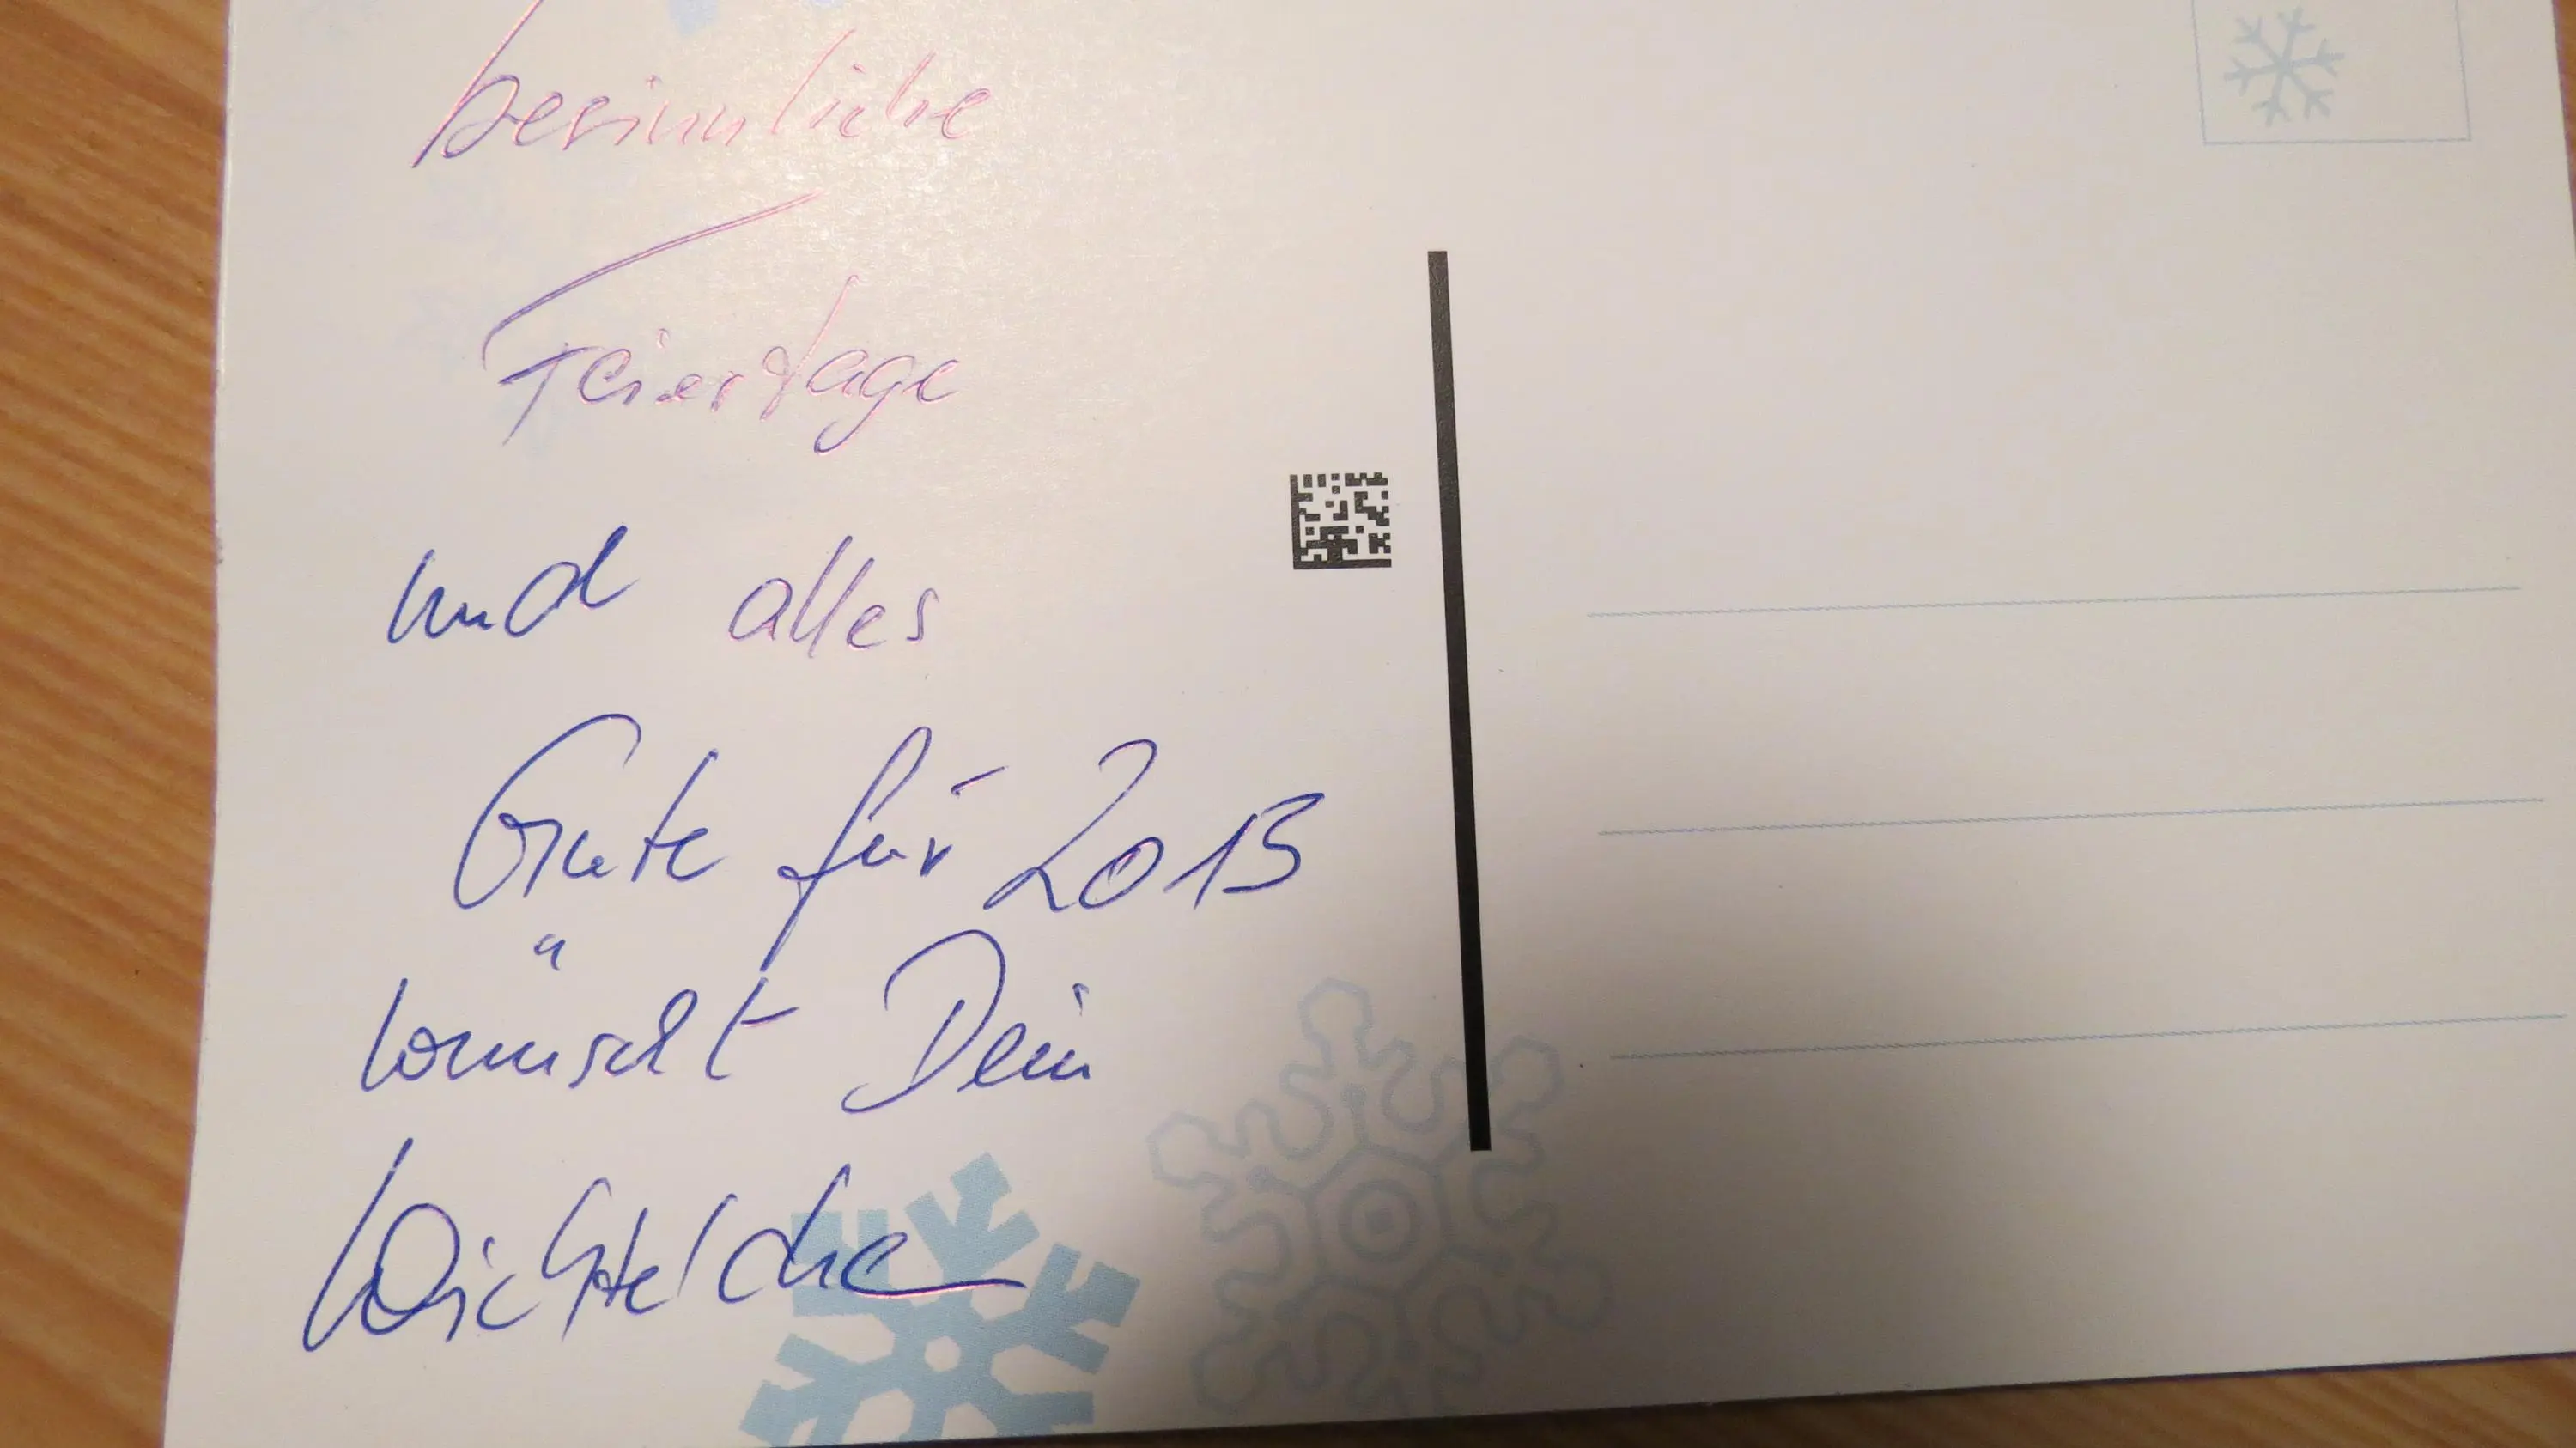 besinnliche
Feiertage
und alles
Gute für 2013
wünscht Dein
Wichtelche